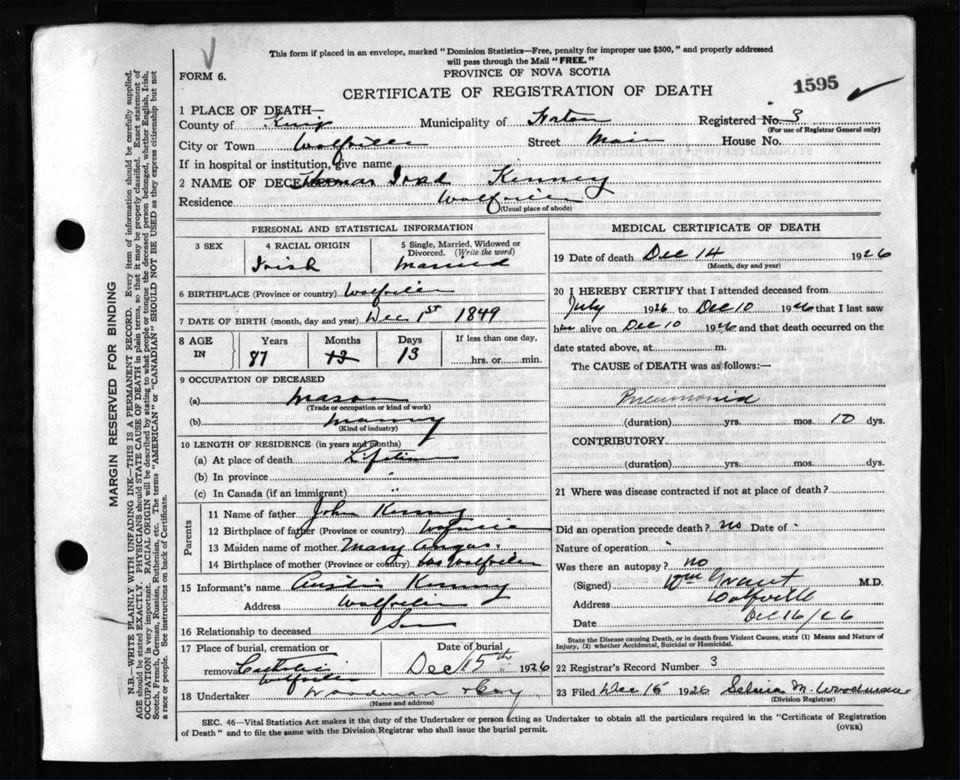 This form if placed in an envelope, marked "Dominion Statistics—Free, penalty for improper use $300," and properly addressed
will pass through the Mail "FREE."
FORM 6.
PROVINCE OF NOVA SCOTIA
CERTIFICATE OF REGISTRATION OF DEATH
1595
1 PLACE OF DEATH—
County of Kings Municipality of Horton Registered No. 3
(For use of Registrar General only)
City or Town Wolfville Street Main House No.
If in hospital or institution, give name
2 NAME OF DECEASED Thomas Kinney
Residence Wolfville
(Usual place of abode)
PERSONAL AND STATISTICAL INFORMATION
3 SEX 4 RACIAL ORIGIN 5 Single, Married, Widowed or
Divorced. (Write the word)
Irish Married
6 BIRTHPLACE (Province or country) Wolfville
7 DATE OF BIRTH (month, day and year) Dec 1st 1849
8 AGE IN Years Months Days If less than one day,
87 12 13 hrs. or min.
9 OCCUPATION OF DECEASED
(a) Mason
(Trade or occupation or kind of work)
(b) Masonry
(Kind of industry)
10 LENGTH OF RESIDENCE (in years and months)
(a) At place of death Lifetime
(b) In province "
(c) In Canada (if an immigrant) "
Parents
11 Name of father John Kinney
12 Birthplace of father (Province or country)
13 Maiden name of mother Mary Angus
14 Birthplace of mother (Province or country) Wolfville
15 Informant's name Kinney
Address Wolfville
16 Relationship to deceased Son
17 Place of burial, cremation or Date of burial
removal Catholic Wolfville Dec 15th 1926
18 Undertaker Woodman & Coy
(Name and address)
MEDICAL CERTIFICATE OF DEATH
19 Date of death Dec 14 1926
(Month, day and year)
20 I HEREBY CERTIFY that I attended deceased from
July 1926 to Dec 10 1926 that I last saw
him alive on Dec 10 1926 and that death occurred on the
date stated above, at m.
The CAUSE of DEATH was as follows:—
Pneumonia
(duration) yrs. mos. 10 dys.
CONTRIBUTORY
(duration) yrs. mos. dys.
21 Where was disease contracted if not at place of death?
Did an operation precede death? no Date of
Nature of operation
Was there an autopsy? no
(Signed) M.D.
Address Wolfville
Date Dec 16/26
State the Disease causing Death, or in death from Violent Causes, state (1) Means and Nature of
Injury, (2) whether Accidental, Suicidal or Homicidal.
22 Registrar's Record Number 3
23 Filed Dec 15 1926 Woodman
(Division Registrar)
SEC. 46—Vital Statistics Act makes it the duty of the Undertaker or person acting as Undertaker to obtain all the particulars required in the "Certificate of Registration
of Death" and to file the same with the Division Registrar who shall issue the burial permit.
(OVER)
MARGIN RESERVED FOR BINDING
N.B.—WRITE PLAINLY WITH UNFADING INK—THIS IS A PERMANENT RECORD. Every item of information should be carefully supplied.
AGE should be stated EXACTLY. PHYSICIANS should STATE CAUSE OF DEATH in plain terms, so that it may be properly classified. Exact statement of
OCCUPATION is very important. RACIAL ORIGIN will be described by stating to what people or tongue the deceased person belonged, whether English, Irish,
Scotch, French, German, Russian, Ruthenian, etc. The terms "AMERICAN" or "CANADIAN" SHOULD NOT BE USED as they express citizenship but not
a race or people. See instructions on back of Certificate.